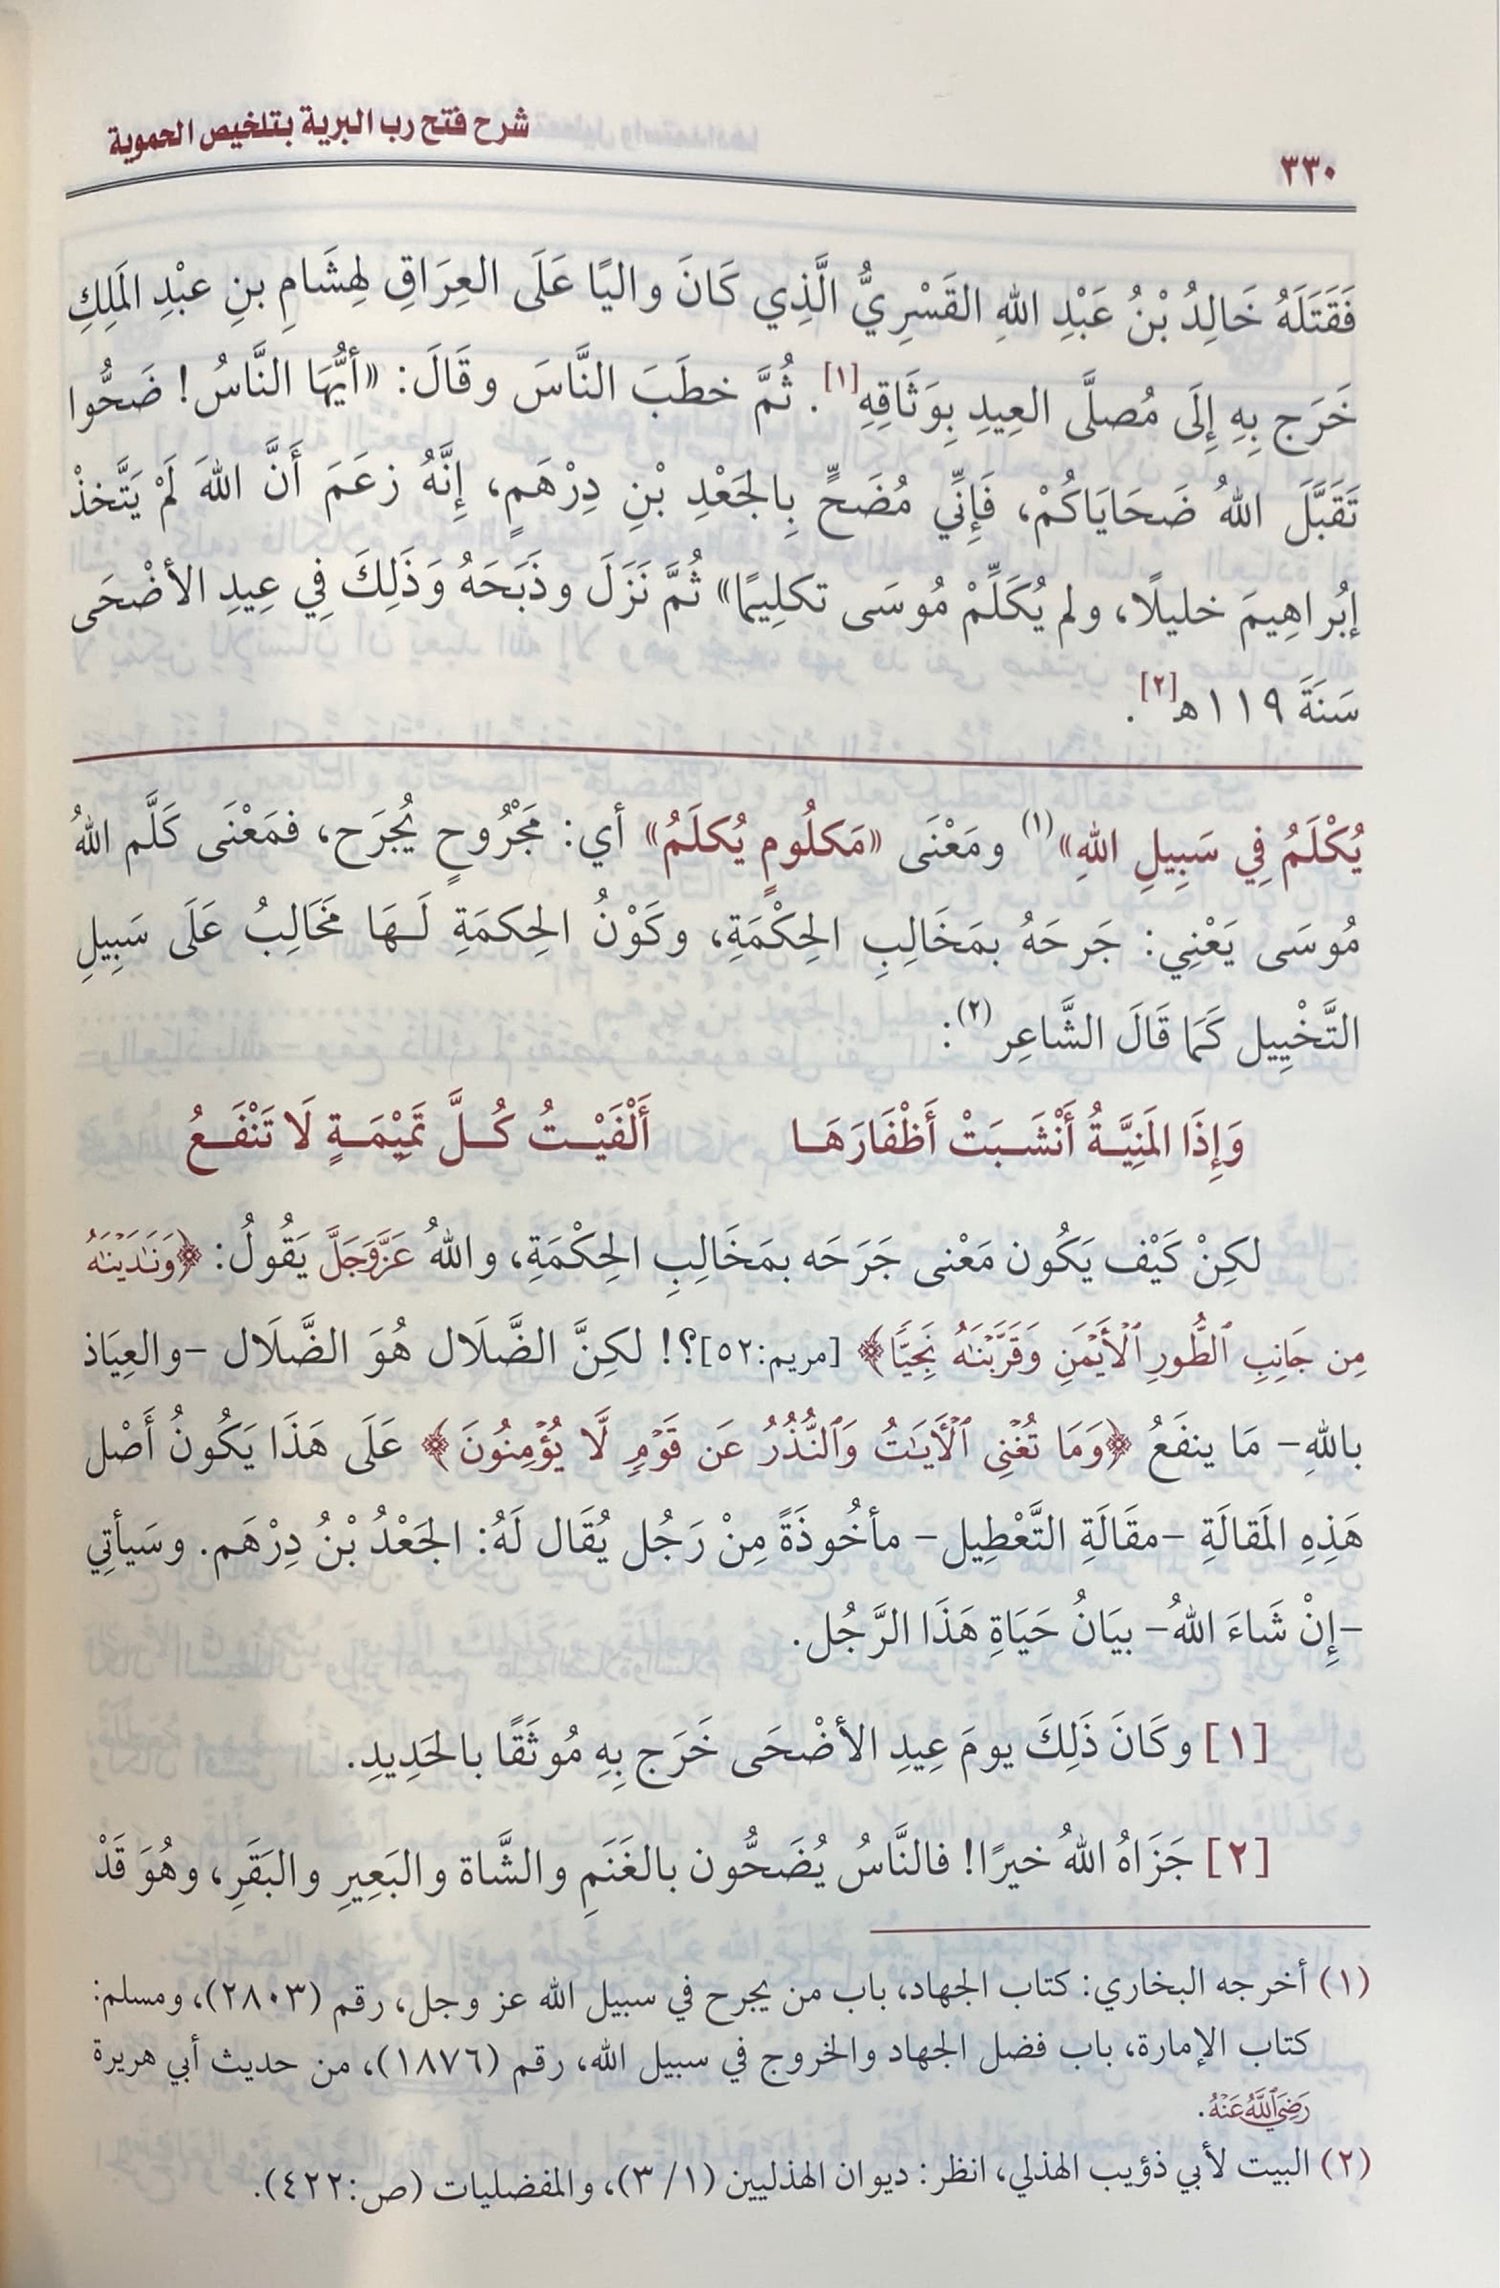 ٣٣٠
شرح فتح رب البرية بتلخيص الحموية
فَقَتَلَهُ خَالِدُ بْنُ عَبْدِ اللهِ القَسْرِيُّ الَّذِي كَانَ واليًا عَلَى العِرَاقِ لِهِشَامِ بنِ عبْدِ المَلِكِ
خَرَج بِهِ إِلَى مُصلَّى العِيدِ بِوَثَاقِهِ[١]. ثُمَّ خطَبَ النَّاسَ وقَالَ: «أيُّهَا النَّاسُ! ضَحُّوا
تَقَبَّلَ اللهُ ضَحَايَاكُمْ، فَإِنِّي مُضَحٍّ بِالجَعْدِ بْنِ دِرْهَمٍ، إِنَّهُ زعَمَ أَنَّ اللهَ لَمْ يَتَّخذْ
إبْراهِيمَ خليلًا، ولم يُكَلِّمْ مُوسَى تكلِيمًا» ثُمَّ نَزَلَ وذَبَحَهُ وَذَلِكَ فِي عِيدِ الأضْحَى
سَنَةَ ١١٩ هـ[٢].
يُكْلَمُ فِي سَبِيلِ اللهِ»(١) ومَعْنَى «مَكلُومٍ يُكلَمُ» أي: مَجْرُوحٍ يُجرَح، فمَعْنَى كَلَّم اللهُ
مُوسَى يَعْنِي: جَرحَهُ بمَخَالِبِ الحِكْمَةِ، وكَوْنُ الحِكمَةِ لَـهَا مَخَالِبُ عَلَى سَبِيلِ
التَّخْيِيل كَمَا قَالَ الشَّاعِر(٢):
وَإِذَا المَنِيَّـةُ أَنْشَـبَتْ أَظْفَارَهَـا أَلْفَيْـتُ كُـلَّ تَمِيْمَـةٍ لَا تَنْفَـعُ
لكِنْ كَيْف يَكُون مَعْنى جَرَحَه بمَخَالِبِ الحِكْمَةِ، واللهُ عَزَّوَجَلَّ يَقُولُ: ﴿وَنَٰدَيْنَٰهُ
مِن جَانِبِ ٱلطُّورِ ٱلْأَيْمَنِ وَقَرَّبْنَٰهُ نَجِيًّا﴾ [مريم:٥٢]؟! لكِنَّ الضَّلَال هُوَ الضَّلَال -والعِيَاذ
باللهِ- مَا ينفَعُ ﴿وَمَا تُغْنِى ٱلْأَيَٰتُ وَٱلنُّذُرُ عَن قَوْمٍ لَّا يُؤْمِنُونَ﴾ عَلَى هَذَا يَكُونُ أَصْل
هَذِهِ المَقالَةِ -مقَالَةِ التَّعْطِيل- مأخُوذَةً مِنْ رَجُل يُقَال لَهُ: الجَعْدُ بْنُ دِرْهَم. وسَيأتِي
-إِنْ شَاءَ اللهُ- بيَانُ حَيَاةِ هَذَا الرَّجُل.
[١] وكَانَ ذَلِكَ يومَ عِيدِ الأضْحَى خَرَج بِهِ مُوثَقًا بالحَدِيدِ.
[٢] جَزَاهُ اللهُ خيرًا! فالنَّاسُ يُضَحُّون بالغَنَمِ والشَّاة والبَعِيرِ والبَقَرِ، وهُوَ قَدْ
(١) أخرجه البخاري: كتاب الجهاد، باب من يجرح في سبيل الله عز وجل، رقم (٢٨٠٣)، ومسلم:
كتاب الإمارة، باب فضل الجهاد والخروج في سبيل الله، رقم (١٨٧٦)، من حديث أبي هريرة
رَضِيَ ٱللَّهُ عَنْهُ.
(٢) البيت لأبي ذؤيب الهذلي، انظر: ديوان الهذليين (١/ ٣)، والمفضليات (ص:٤٢٢).